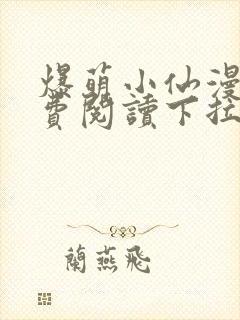 爆萌小仙漫
費閱讀下拉
蘭燕飛